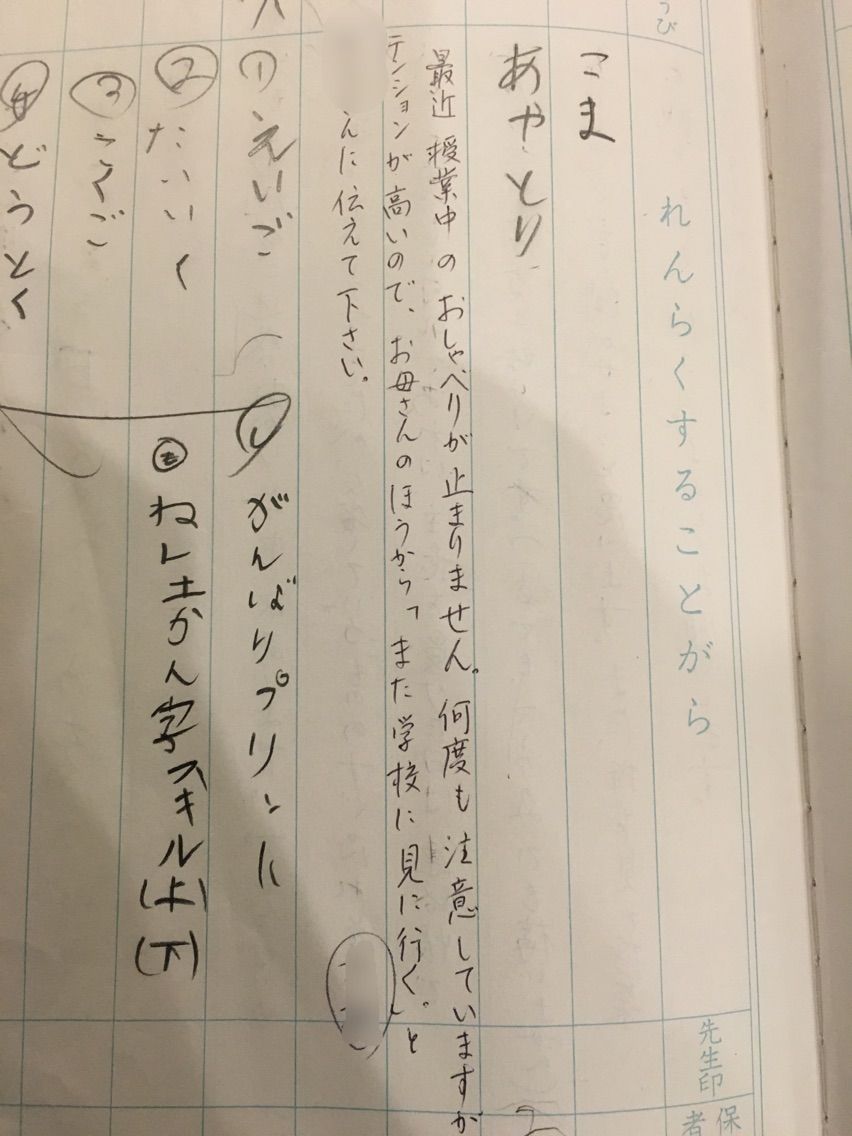 つび
れんらくすることがら
先生印
保
者
こま
あやとり
最近授業中のおしゃべりが止まりません。何度も注意していますが
テンションが高いので、お母さんのほうから「また学校に見に行く。」と
んに伝えて下さい。
①えいご
②たいいく
③こくご
④どうとく
がんばりプリント
も
ねし土かん字スキル(上)
(下)